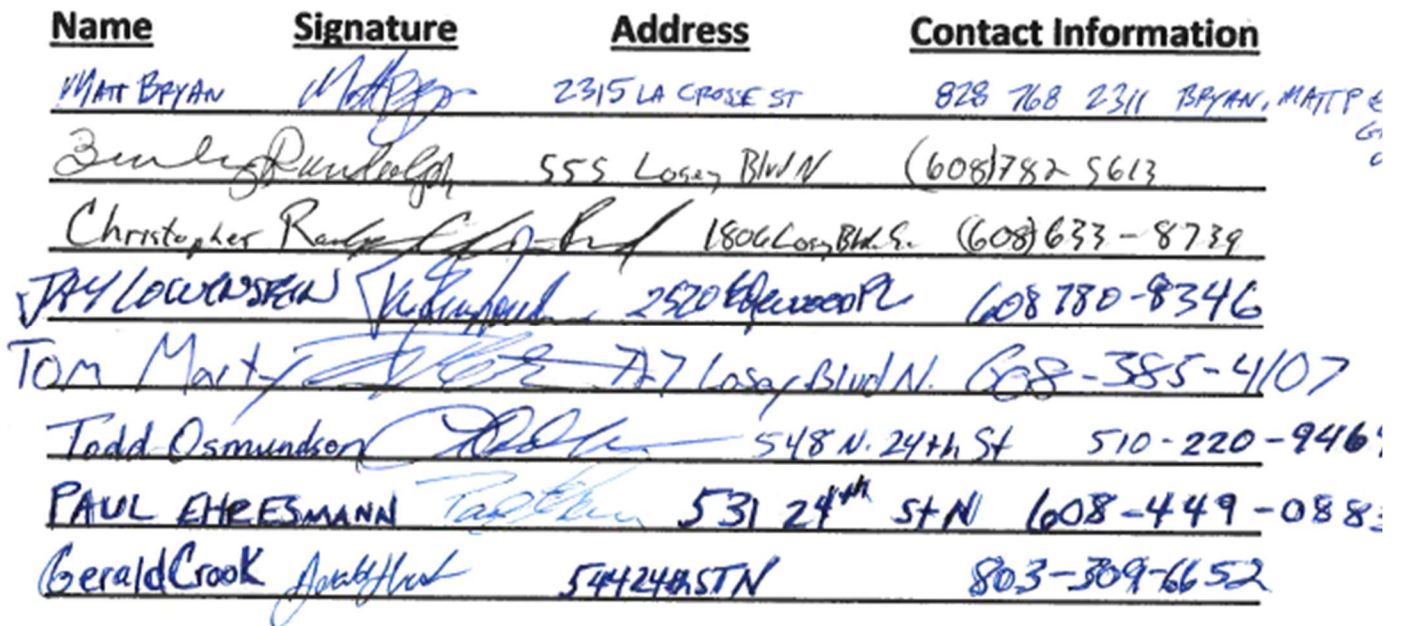 Name Signature Address Contact Information
MATT BRYAN 2315 LA CROSSE ST 828 768 2311 BRYAN, MATTP
Randolph 555 Losey Blvd N (608)782-5613
Christopher 1806 Losey Blvd. S. (608)633-8739
JAY LOWENSTEIN 2520 Edgewood PL 608 780-8346
Tom Marty Losey Blvd N. 608-385-4107
Todd Osmundson 548 N. 24th St 510-220-946
PAUL EHRESMANN 531 24th St N 608-449-088
Gerald Crook 544 24th ST N 803-309-6652